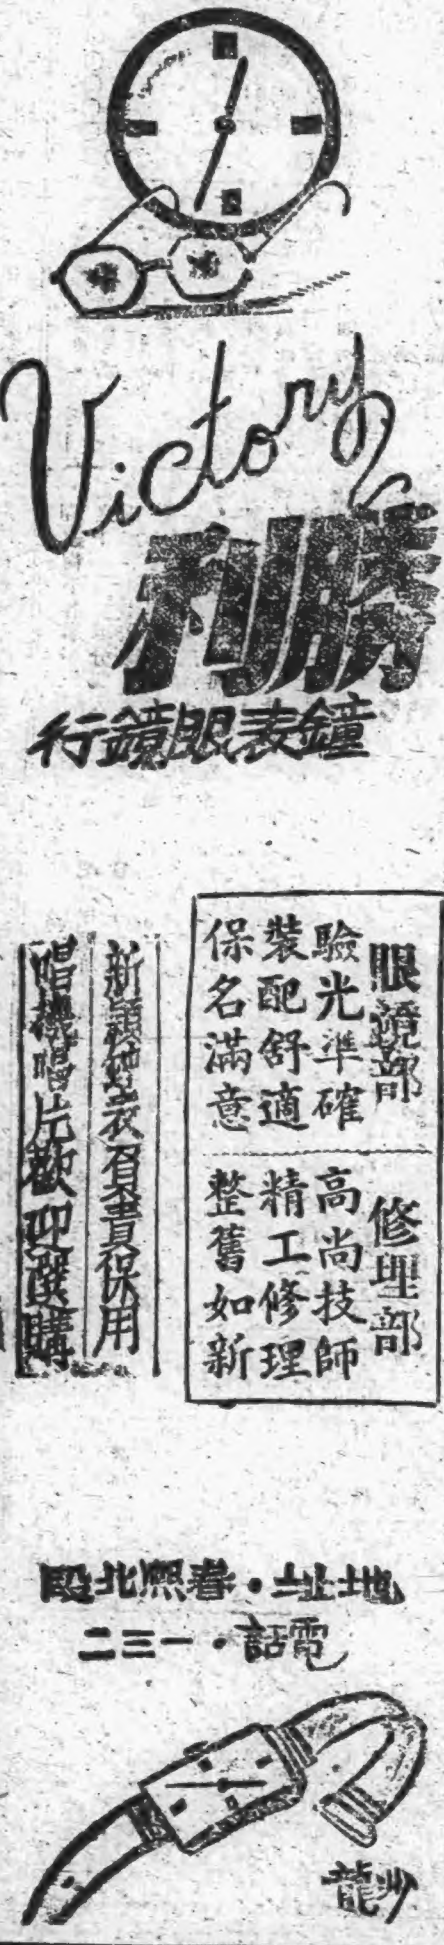 Victory
勝利
鐘表眼鏡行
眼鏡部
驗光準確
裝配舒適
保名滿意
修理部
高尚技師
精工修理
整舊如新
新穎鐘表負責保用
唱機唱片歡迎選購
地址·春熙北段
電話·一三二
沙龍